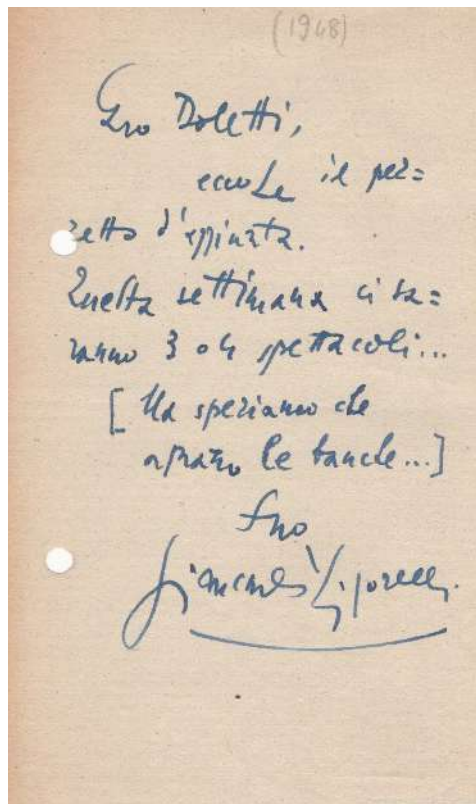 (1948)
Caro Doletti,
eccoLe il pez=
zetto
Questa settimana ci sa=
ranno 3 o 4 spettacoli...
[Ma speriamo che
aprano le banche...]
Suo
Giancarlo Vigorelli